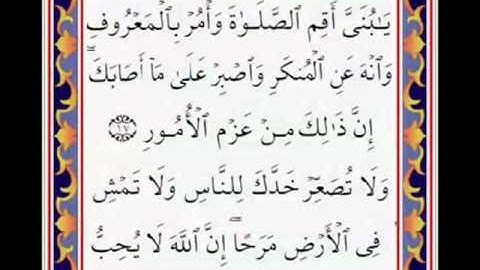 يَـٰبُنَىَّ أَقِمِ ٱلصَّلَوٰةَ وَأۡمُرۡ بِٱلۡمَعۡرُوفِ
وَٱنۡهَ عَنِ ٱلۡمُنكَرِ وَٱصۡبِرۡ عَلَىٰ مَآ أَصَابَكَۖ
إِنَّ ذَٰلِكَ مِنۡ عَزۡمِ ٱلۡأُمُورِ ١٧
وَلَا تُصَعِّرۡ خَدَّكَ لِلنَّاسِ وَلَا تَمۡشِ
فِى ٱلۡأَرۡضِ مَرَحًاۖ إِنَّ ٱللَّهَ لَا يُحِبُّ